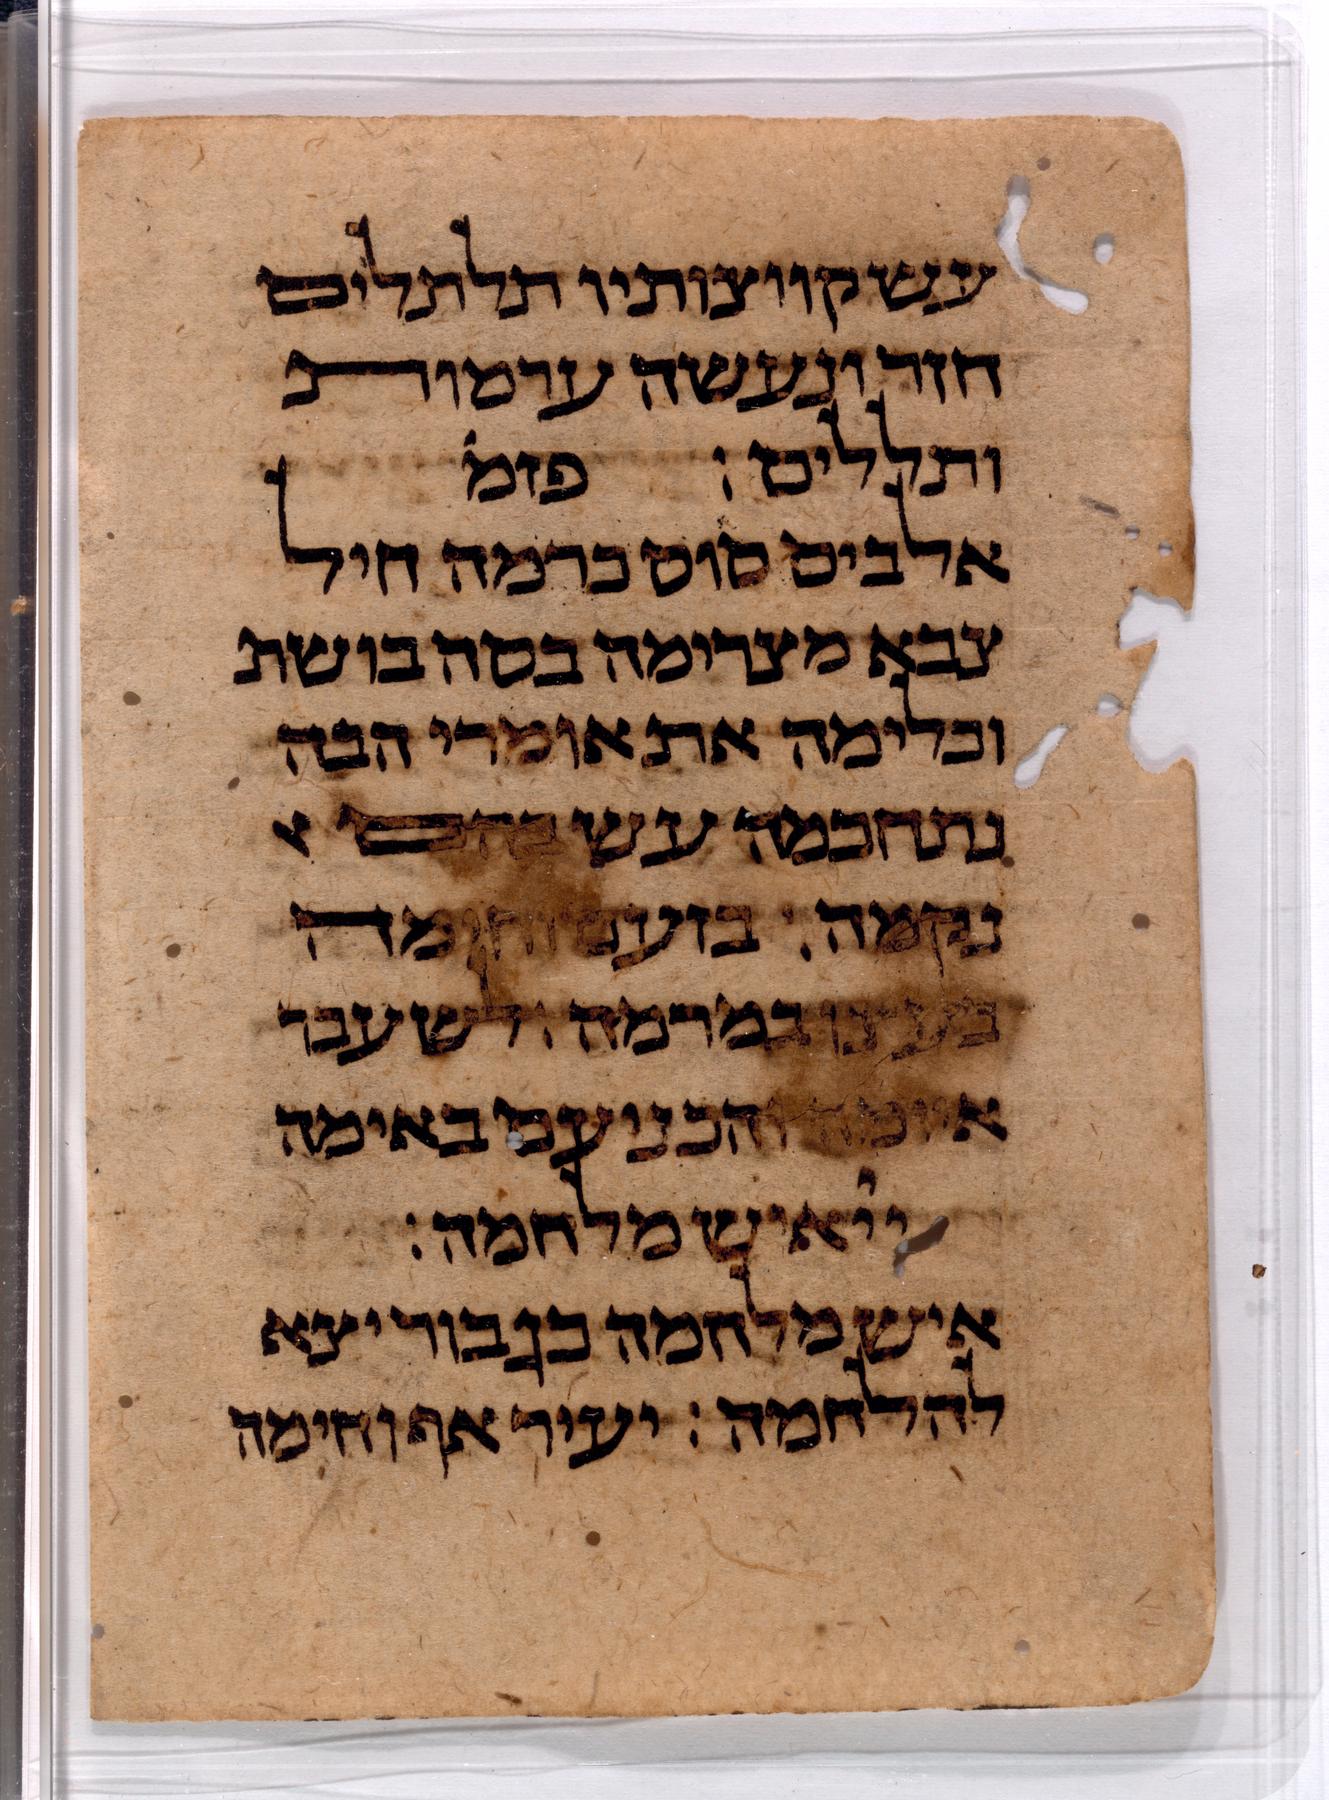 עש קווצותיו תלתלים
חזר ונעשה ערמות
ותללים : פזמ
אלביס סוס ברמה חיל
צבא מצרימה כסה בושת
וכלימה את אומרי הבה
נתחכמה עש בהם
נקמה : בזעם וחימה
במרמה ולשעבד
והבנו עם באימה
ייי איש מלחמה :
איש מלחמה כגבור יצא
להלחמה : יעיר אף וחימה